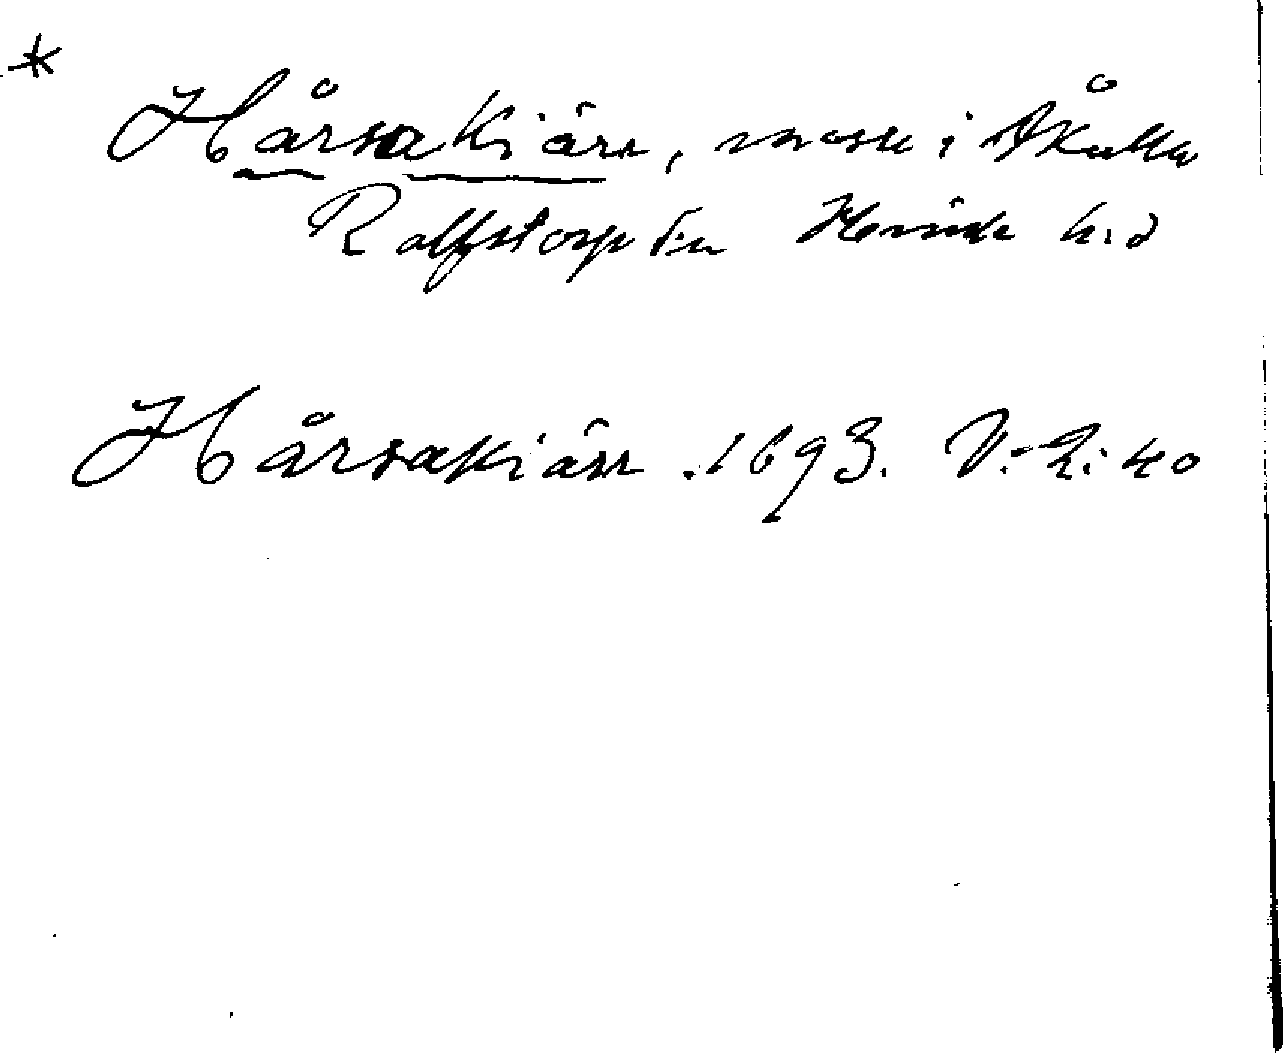 *
Hårsakiärr, mosse i Åkulla
Rolfstorp sn Himle hd
Hårsakiärr. 1693. V.-2: 40